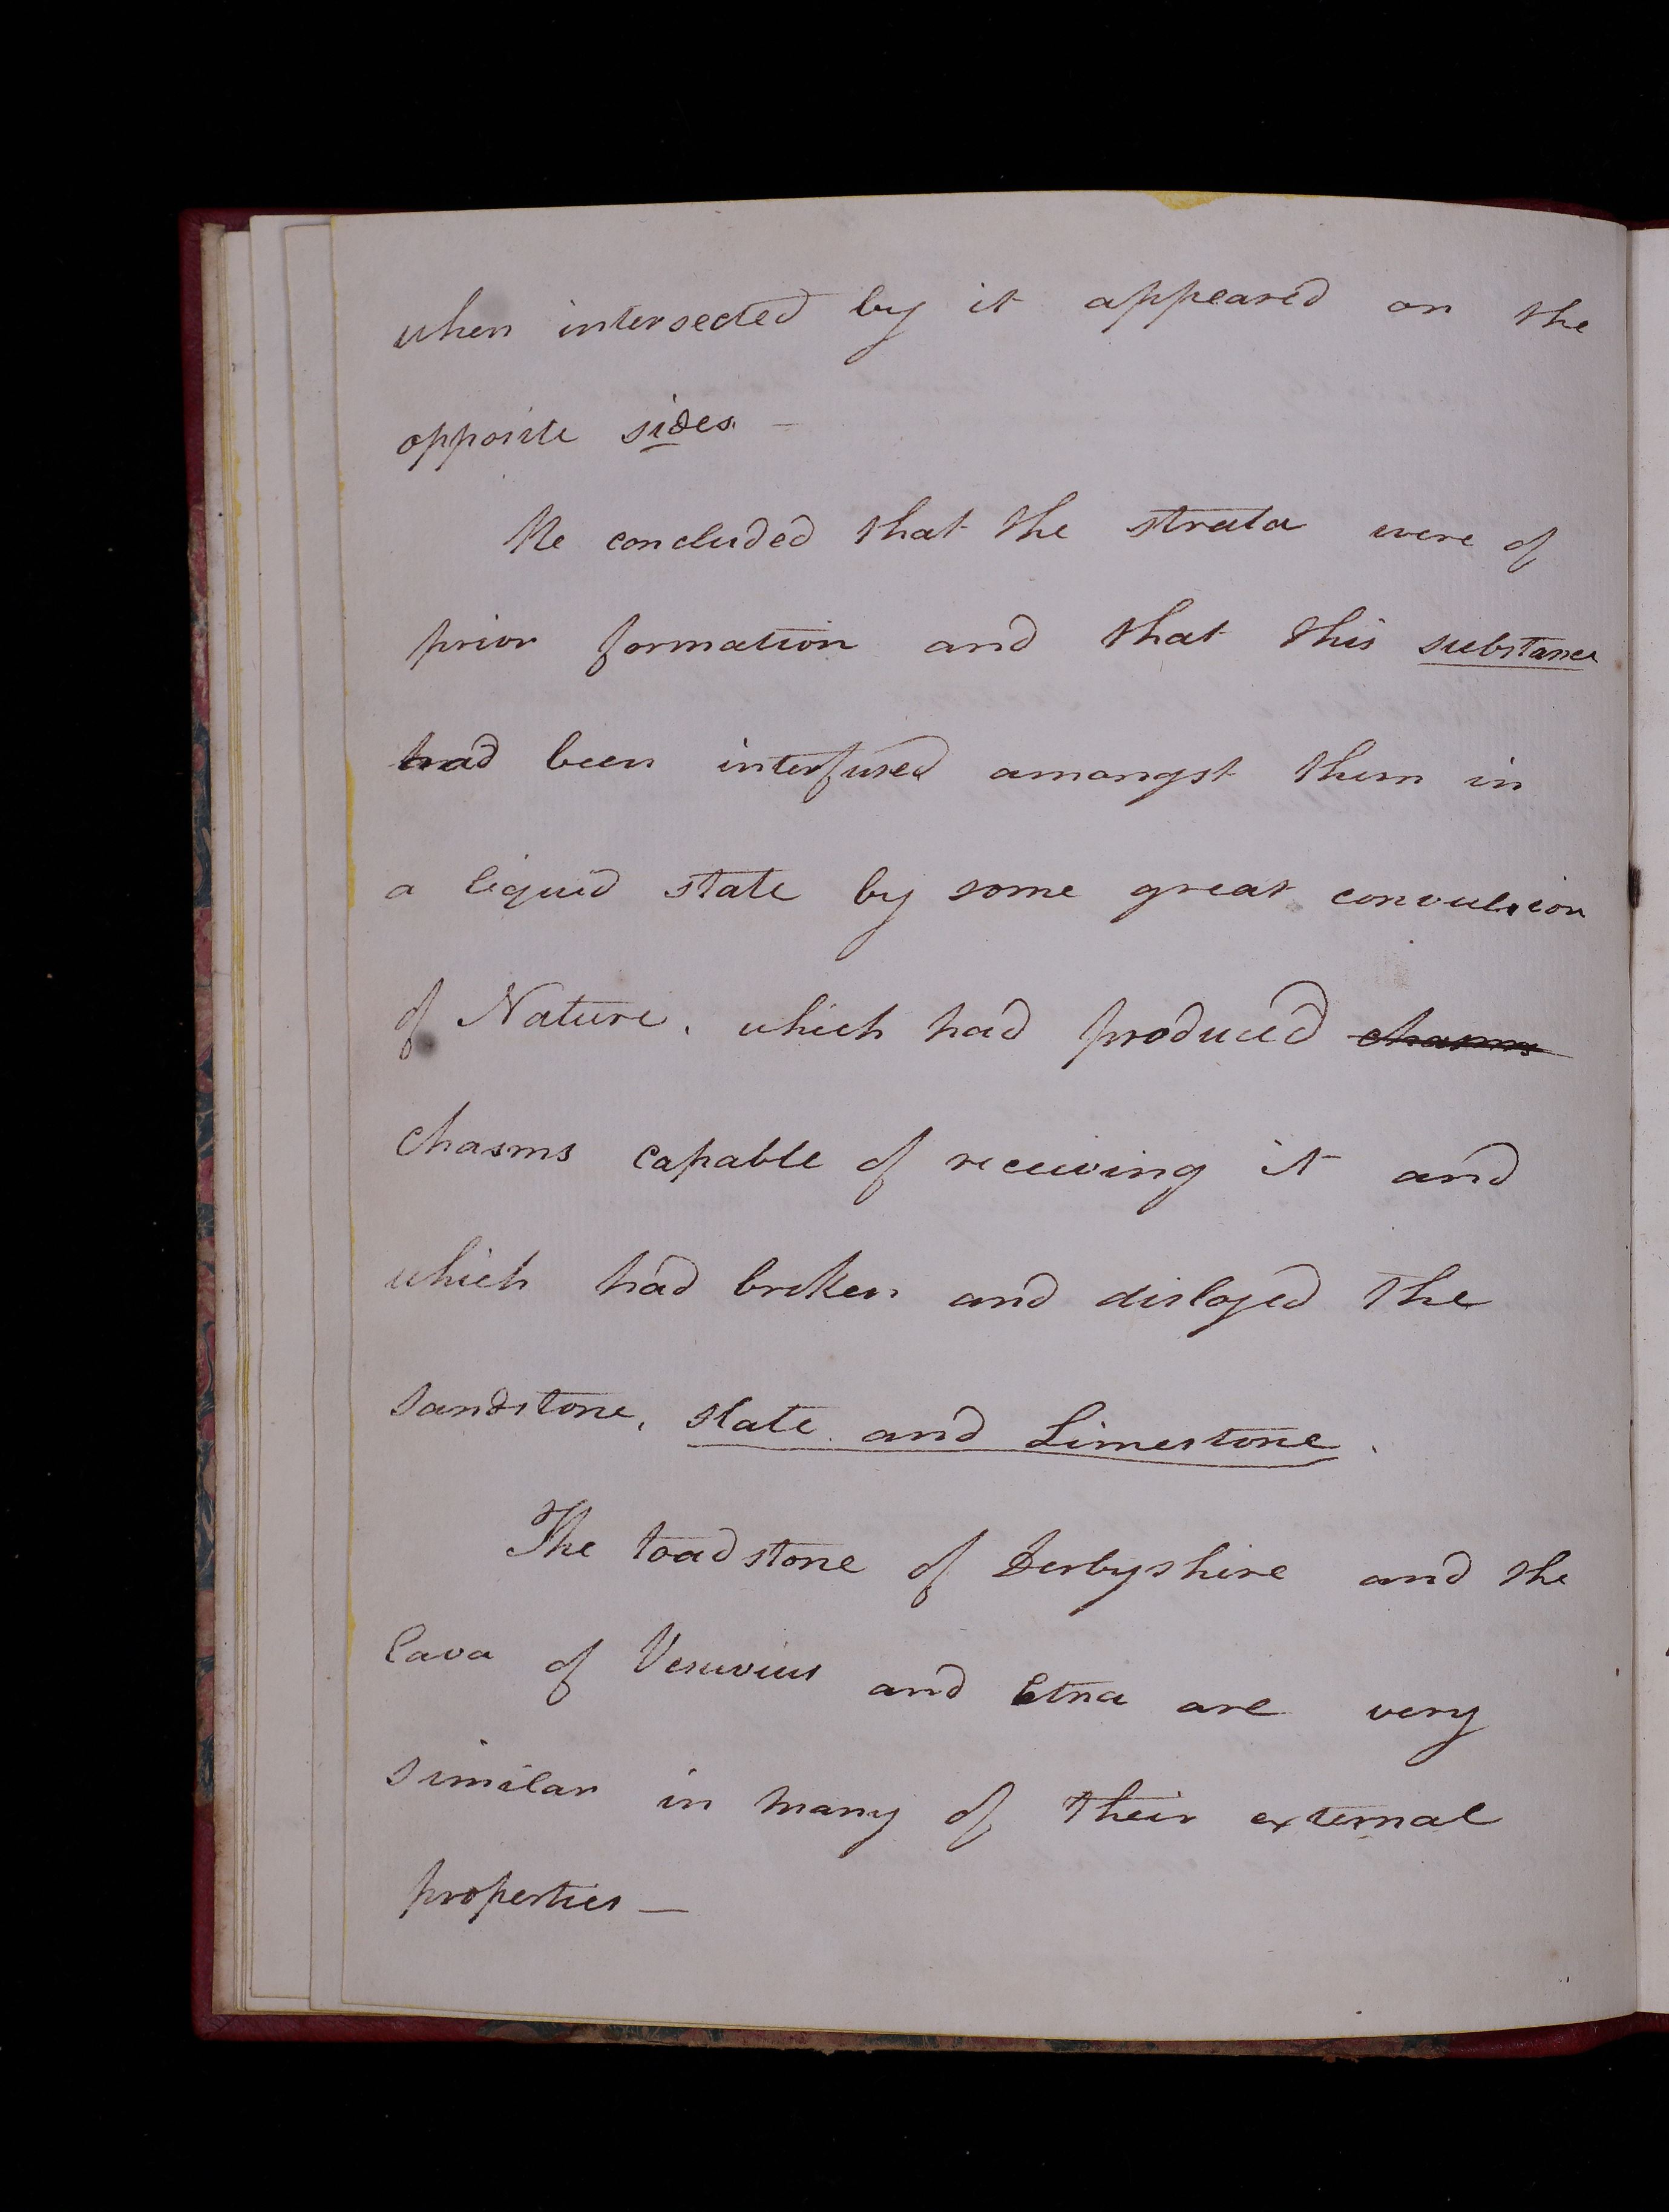 when intersected by it appeared on the
opposite sides. —
He concluded that the strata were of
prior formation and that this substance
had been interfused amongst them in
a liquid state by some great convulsion
of Nature. which had produced chasms
chasms capable of receiving it and
which had broken and disloged the
sandstone, slate and Limestone.
The toadstone of Derbyshire and the
lava of Vesuvius and Etna are very
similar in many of their external
properties —